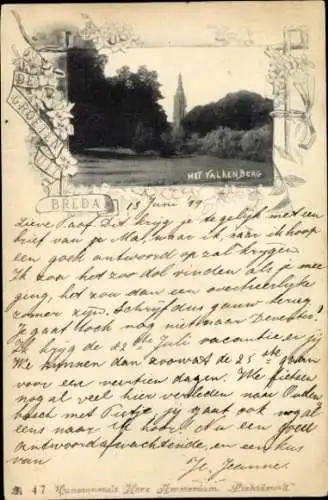 DE GROETEN UIT
BREDA
HET VALKENBERG
13 Juni 99
Lieve Paaf Dit krijg je tegelijk met een
brief van je Ma, waar ik, naar ik hoop
een goed antwoord op zal krijgen.
Ik zou het zoo dol vinden als je mee
ging, het zou dan een overheerlijke
zomer zijn. Schrijf dus gauw terug
Je gaat toch nog niet naar Deventer?
Ik krijg de 22ste Juli vacantie en jij
We kunnen dan zoowat de 25ste gaan
voor een veertien dagen. We fietsen
nogal veel hier verleden naar
bosch met jij gaat ook nog al
eens naar ik hoor. Nu een goed
antwoord afwachtende, en een kus van
Je Jeanne.
47 Kunsthandel Herz Amsterdam